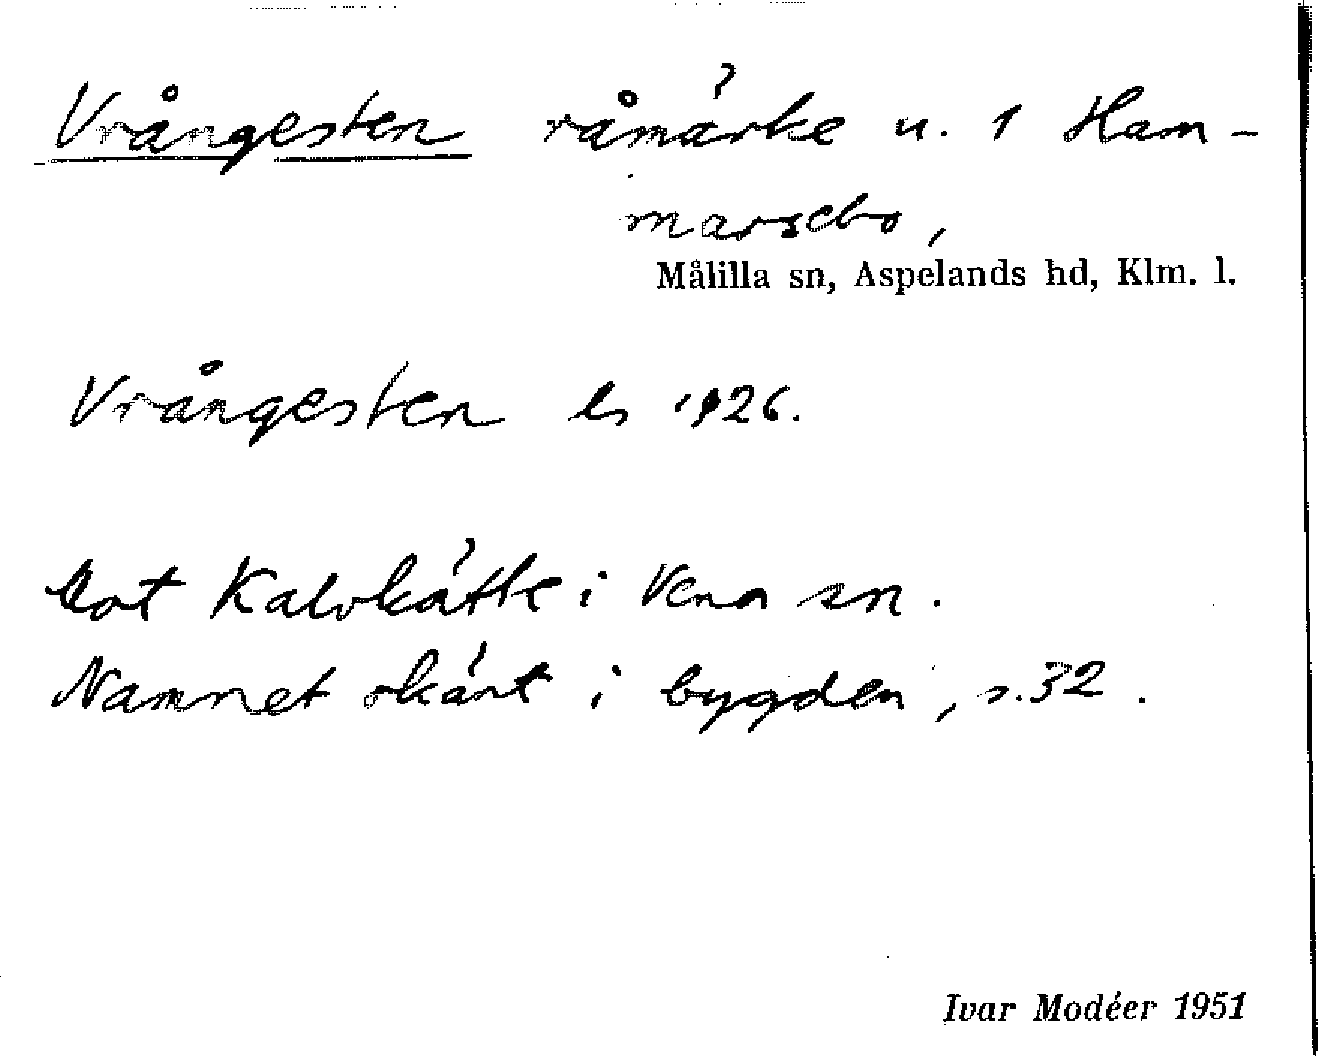 Vrångesten råmärke u. 1 Ham-
marsebo,
Målilla sn, Aspelands hd, Klm. l.
Vrångesten ls 1926.
Mot Kalvkätte i Vena sn.
Namnet känt i bygden, s. 32.
Ivar Modéer 1951